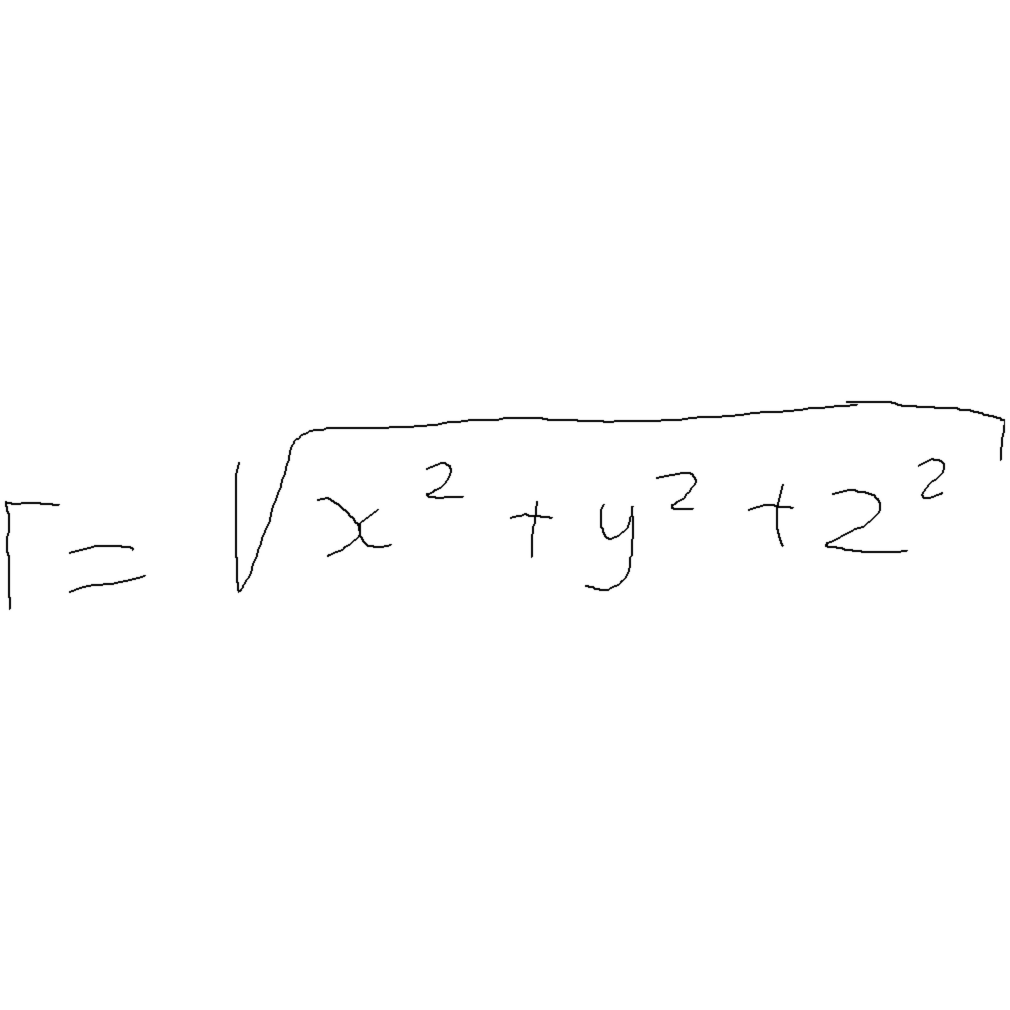 r = √(x² + y² + z²)